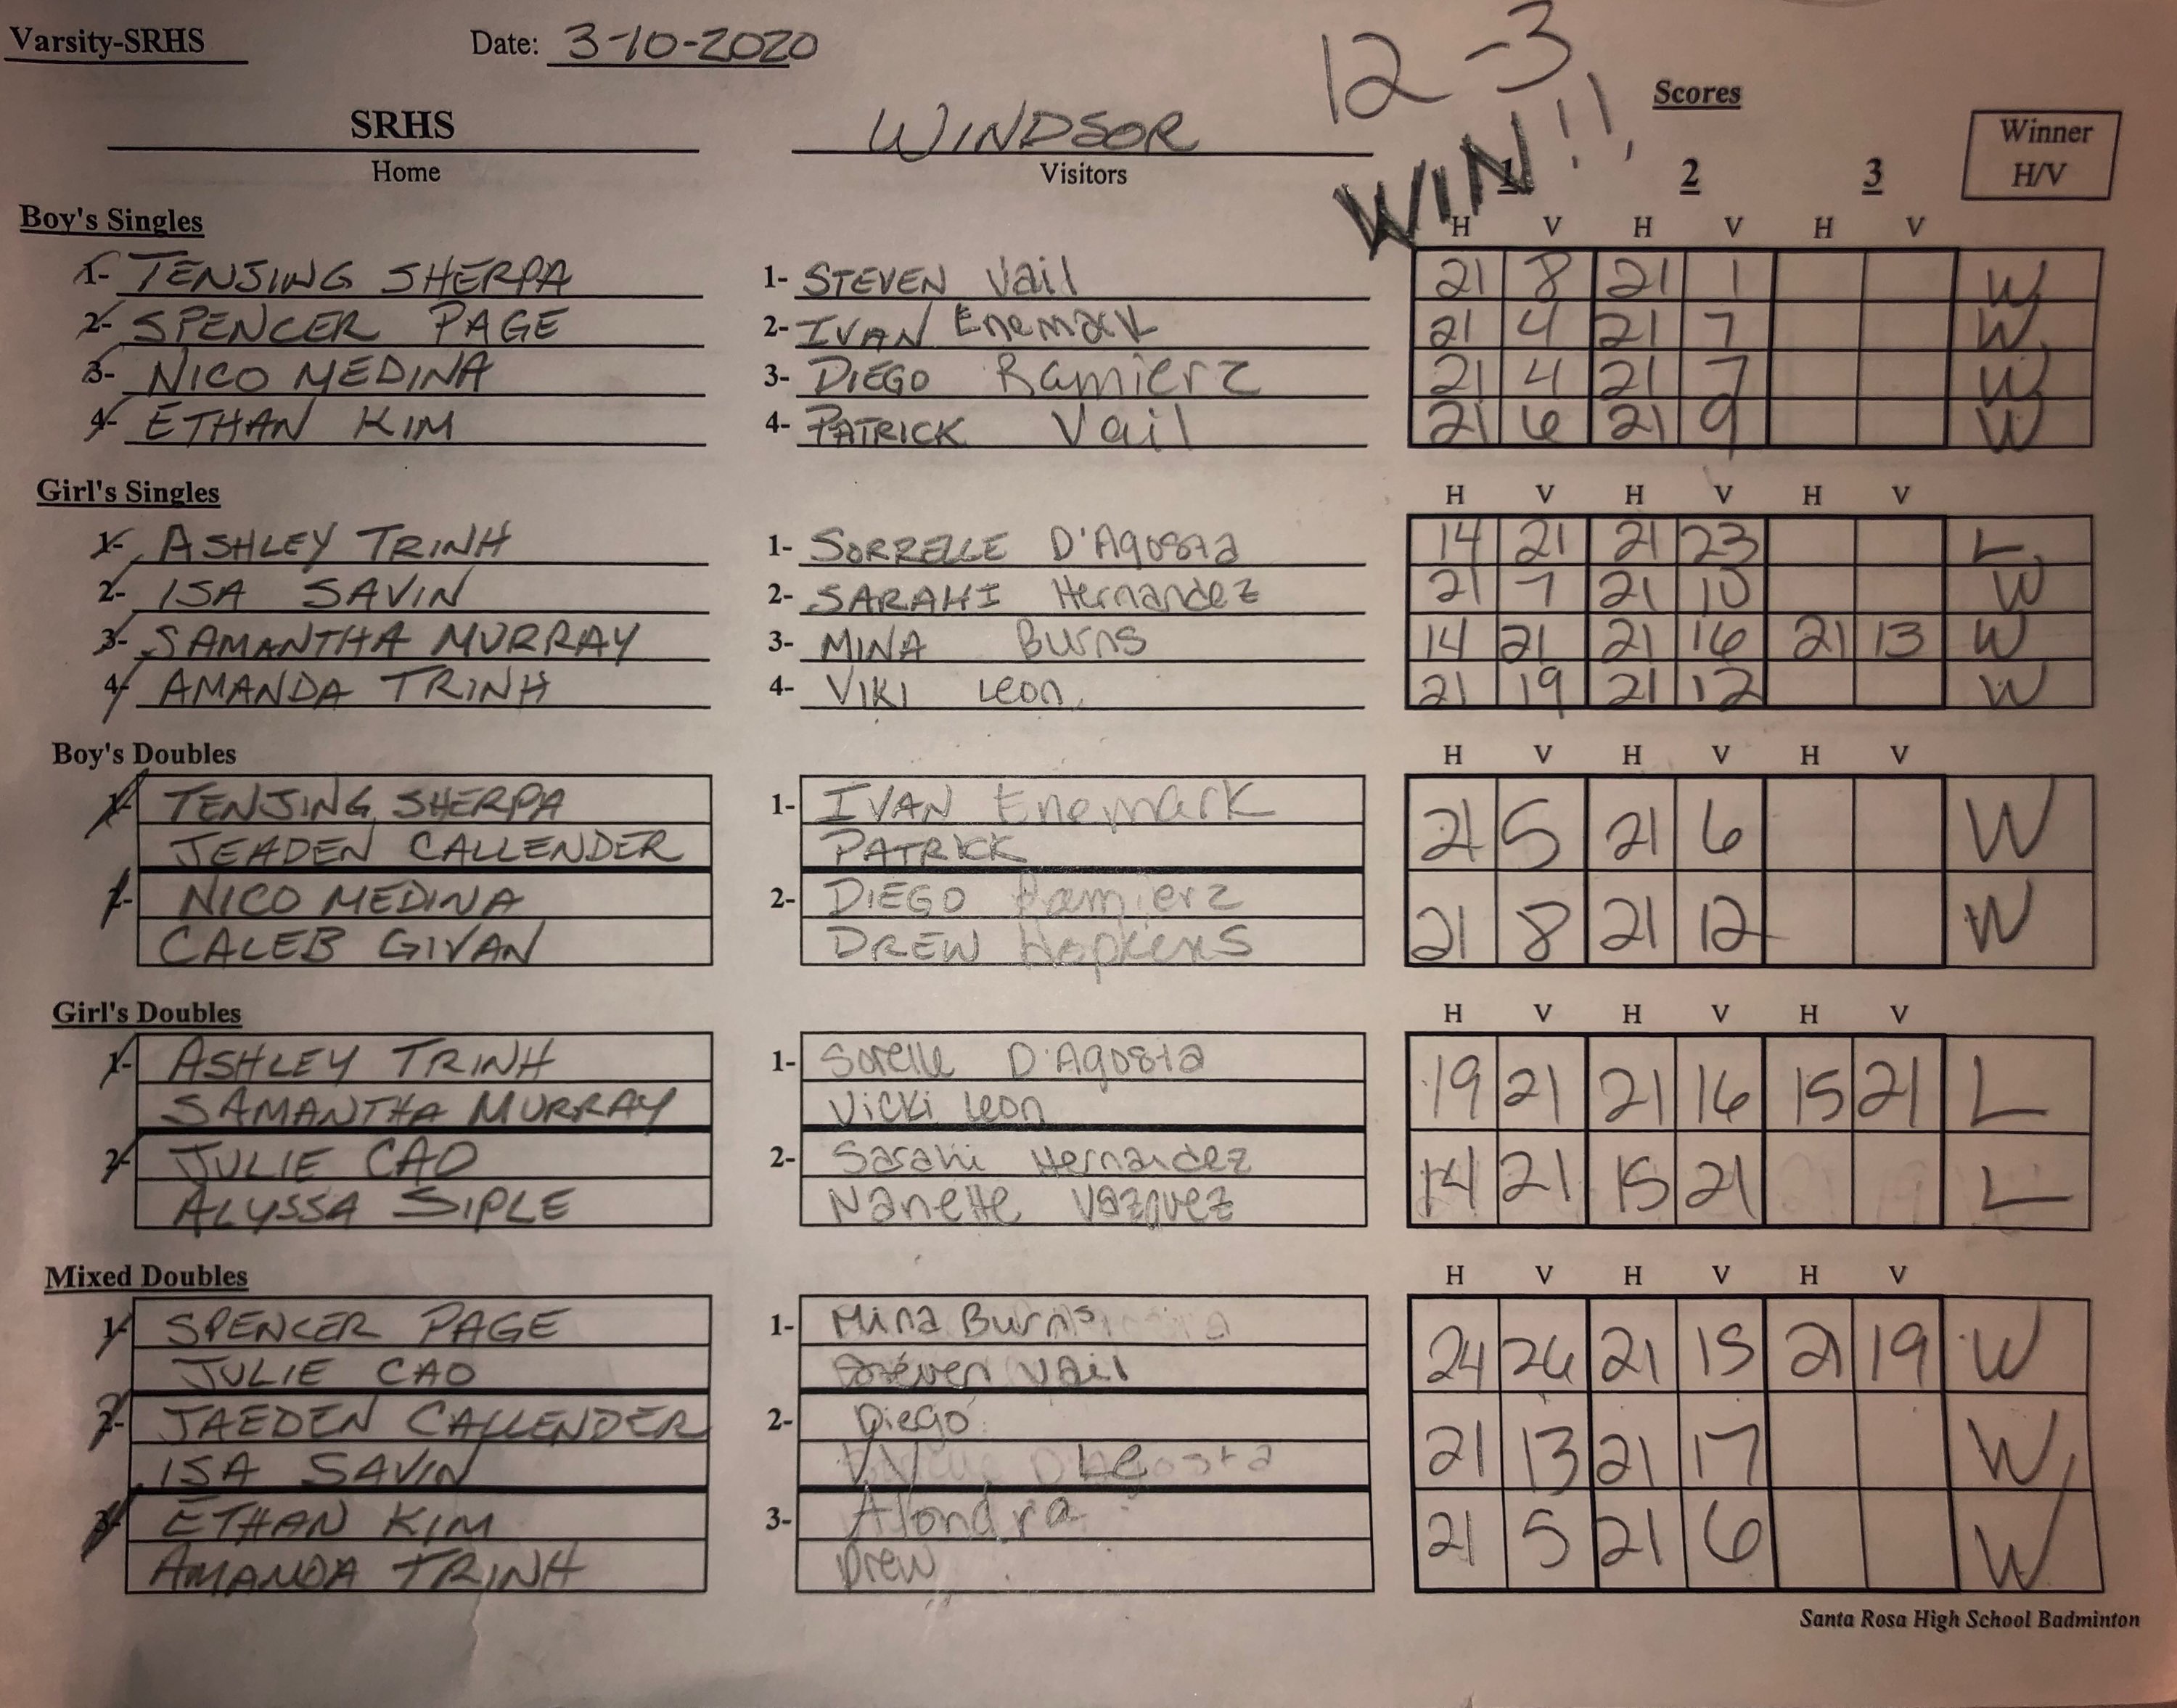 Varsity-SRHS Date: 3-10-2020 12-3
WIN!!
Scores
SRHS WINDSOR
Home Visitors 1 2 3 Winner H/V
Boy's Singles H V H V H V
1- TENJING SHERPA 1- STEVEN Vail 21 8 21 1 W
2- SPENCER PAGE 2- IVAN Enemark 21 4 21 7 W
3- NICO MEDINA 3- DIEGO Ramierz 21 4 21 7 W
4- ETHAN KIM 4- PATRICK Vail 21 6 21 9 W
Girl's Singles H V H V H V
1- ASHLEY TRINH 1- SORRELLE D'Agosta 14 21 21 23 L
2- ISA SAVIN 2- SARAHI Hernandez 21 7 21 10 W
3- SAMANTHA MURRAY 3- MINA Burns 14 21 21 16 21 13 W
4- AMANDA TRINH 4- VIKI Leon 21 19 21 12 W
Boy's Doubles H V H V H V
1- TENJING SHERPA 1- IVAN Enemark 21 5 21 6 W
JEADEN CALLENDER PATRICK
NICO MEDINA 2- DIEGO Ramierz 21 8 21 12 W
CALEB GIVAN DREW Hopkins
Girl's Doubles H V H V H V
1- ASHLEY TRINH 1- Sorelle D'Agosta 19 21 21 16 15 21 L
SAMANTHA MURRAY Vicki Leon
2- JULIE CAO 2- Sarahi Hernandez 14 21 15 21 L
ALYSSA SIPLE Nanette Vazquez
Mixed Doubles H V H V H V
1- SPENCER PAGE 1- Mina Burns 24 26 21 15 21 19 W
JULIE CAO Steven Vail
2- JAEDEN CALLENDER 2- Diego 21 13 21 17 W
ISA SAVIN
3- ETHAN KIM 3- Alondra 21 5 21 6 W
AMANDA TRINH Drew
Santa Rosa High School Badminton